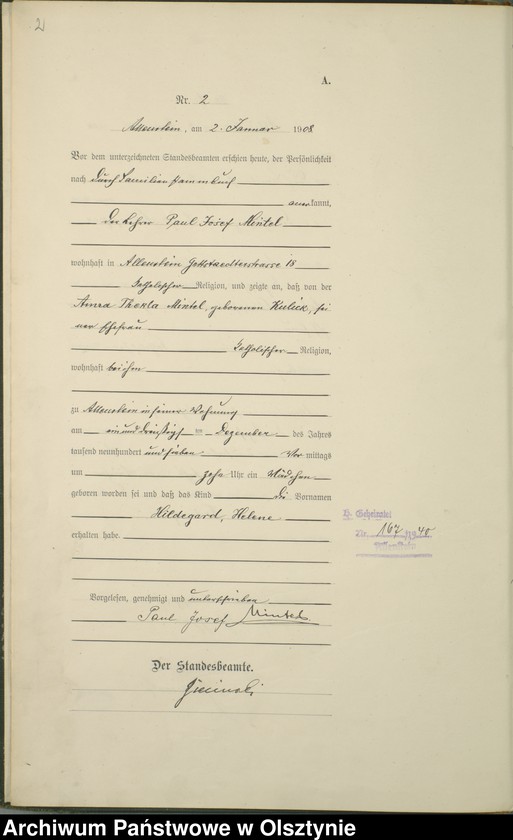 2
A.
Nr. 2
Allenstein, am 2. Januar 1908
Vor dem unterzeichneten Standesbeamten erschien heute, der Persönlichkeit
nach durch Familienstammbuch
anerkannt,
der Lehrer Paul Josef Mintel
wohnhaft in Allenstein 18
katholischer Religion, und zeigte an, daß von der
Anna Thekla Mintel, geborenen Kulick, sei
ner Ehefrau
katholischer Religion,
wohnhaft bei ihm
zu Allenstein in seiner Wohnung
am ein und dreißigsten Dezember des Jahres
tausend neunhundert und sieben Vormittags
um zehn Uhr ein Mädchen
geboren worden sei und daß das Kind die Vornamen
Hildegard, Helene
erhalten habe.
H. Geheiratet
Nr. 167/1940
Allenstein
Vorgelesen, genehmigt und unterschrieben
Paul Josef Mintel
Der Standesbeamte.
Archiwum Państwowe w Olsztynie